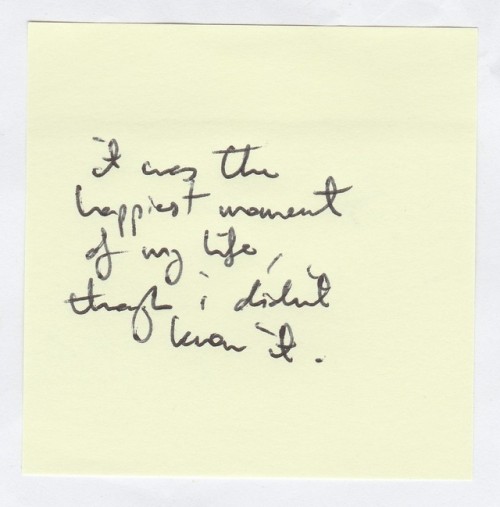 it was the
happiest moment
of my life,
though i didn't
know it.